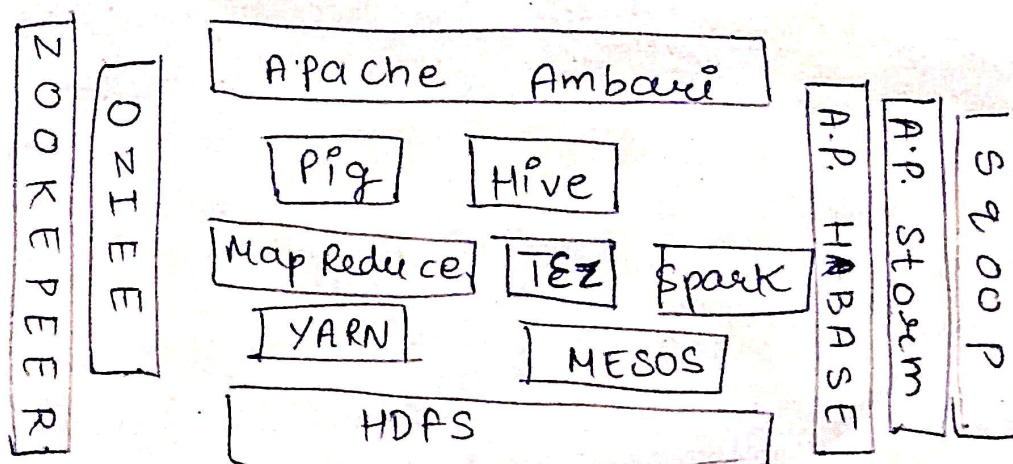 ZOOKEPEER
OZIEE
Apache Ambari
Pig
Hive
Map Reduce
TEZ
Spark
YARN
MESOS
HDFS
A.P. HBASE
A.P. Storm
Sqoop